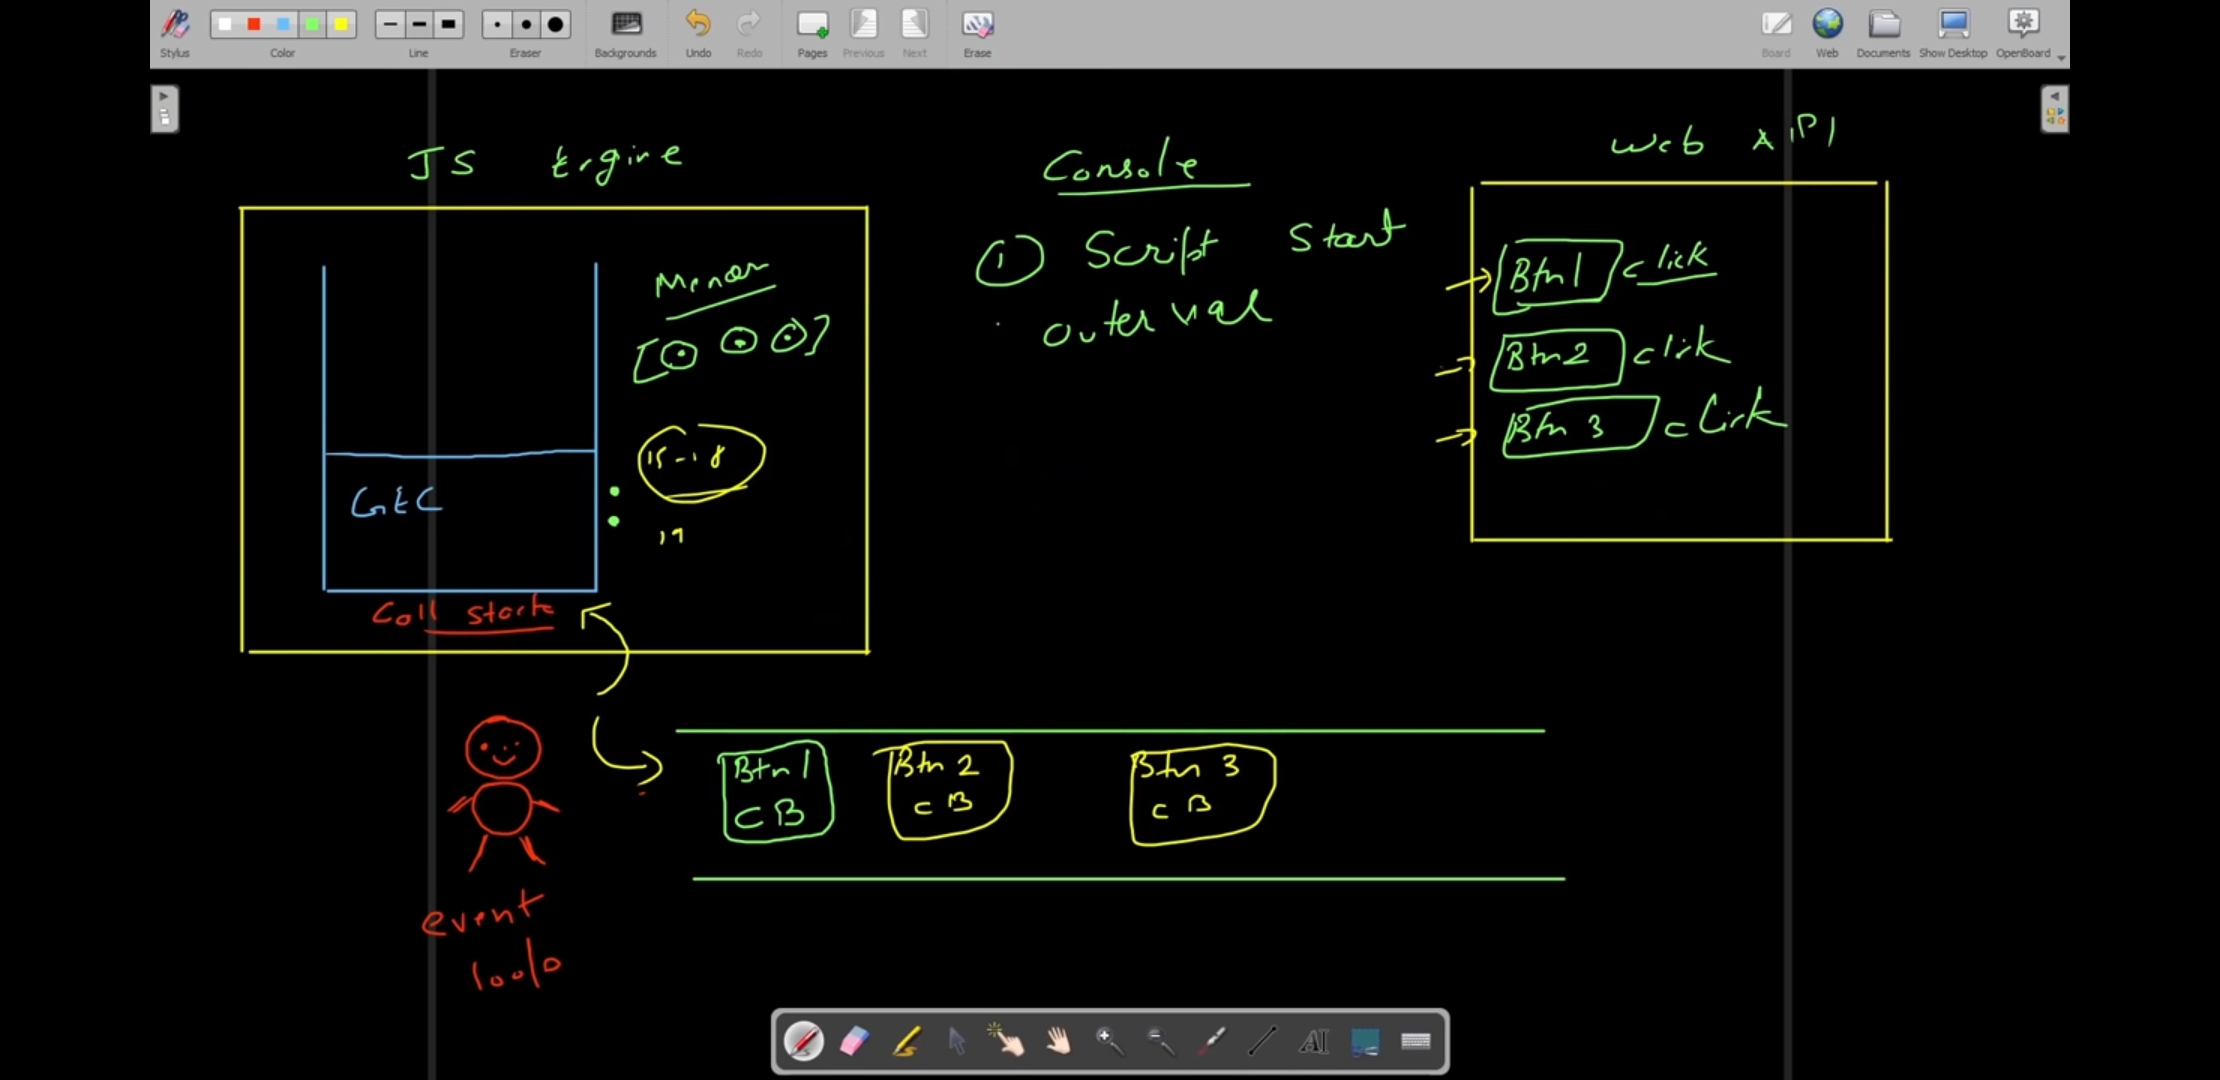 Stylus
Color
Line
Eraser
Backgrounds
Undo
Redo
Pages
Previous
Next
Erase
Board
Web
Documents
Show Desktop
OpenBoard
JS Engine
Console
Web API
① Script Start
outer val
Btn1 click
Btn2 click
Btn 3 click
[⊙ ⊙ ⊙]
15-18
19
GEC
Call stack
Btn 1
CB
Btn 2
CB
Btn 3
CB
event
loop
AI